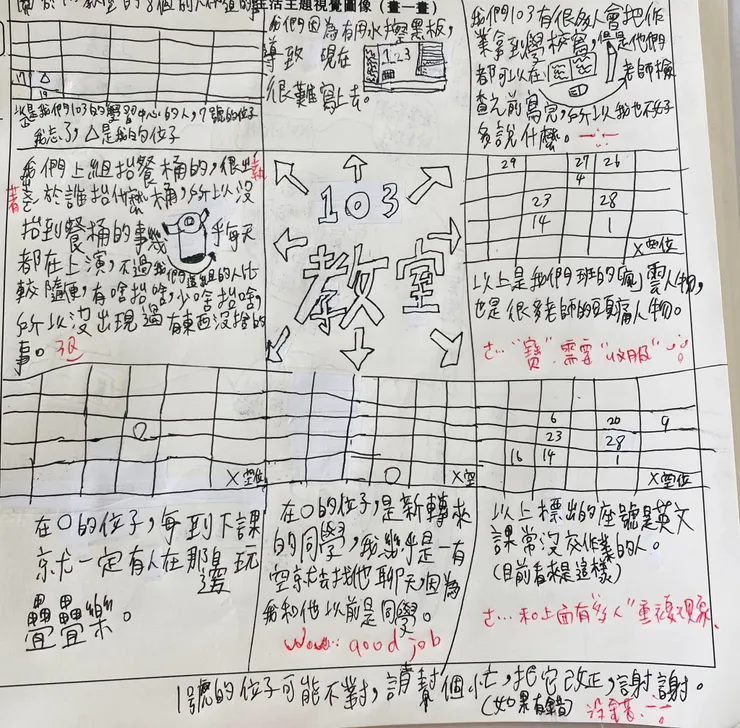 生活主題視覺圖像（畫一畫）
17 △
19
以上是我們103的學習中心的人,7號的位子
我忘了,△是我的位子
我們因為有用水擦黑板,
導致 現在
103
很難寫上去。
我們103有很多人會把作
業拿到學校寫,但是他們
都可以在
老師檢
查完前寫完,所以我也不好
多說什麼。
我們上組抬餐桶的,很
執
著於誰抬什麼桶,所以沒
抬到餐桶的事幾乎每天
都在上演,不過我們這組的人比
較隨便,有啥抬啥,少啥抬啥,
所以沒出現過有東西沒抬的
事。
103
教室
29 27 26
4
23 28
14 1
X空位
以上是我們班的「瘋」雲人物,
也是很多老師的頭痛人物。
"寶" 需要 "收服"
X空位
在○的位子,每到下課
就一定有人在那邊玩
疊疊樂。
X空
在○的位子,是新轉來
的同學,我幾乎是一有
空就去找他聊天,因為
我和他以前是同學。
Wow.. good job
6 20 9
23 28
16 14 1
X空位
以上標出的座號是英文
課常沒交作業的人。
(目前看來是這樣)
和上面有"多人"重複現象
1號的位子可能不對,請幫個忙,把它改正,謝謝。
(如果有錯)
沒錯